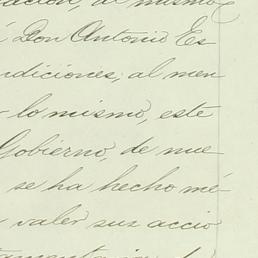 ación, al mismo
Don Antonio Es
ndiciones, al men
lo mismo, este
Gobierno, de nue
se ha hecho mé-
valer sus accio